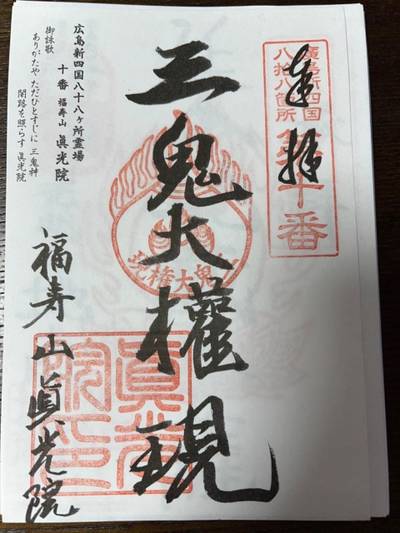 奉拝
廣島新四国
八拾八箇所
第十番
三鬼大權現
三鬼大権現
福寿山眞光院
眞光院印
広島新四国八十八ヶ所霊場
十番 福寿山 眞光院
御詠歌
ありがたや ただひとすじに 三鬼神
闇路を照らす 眞光院